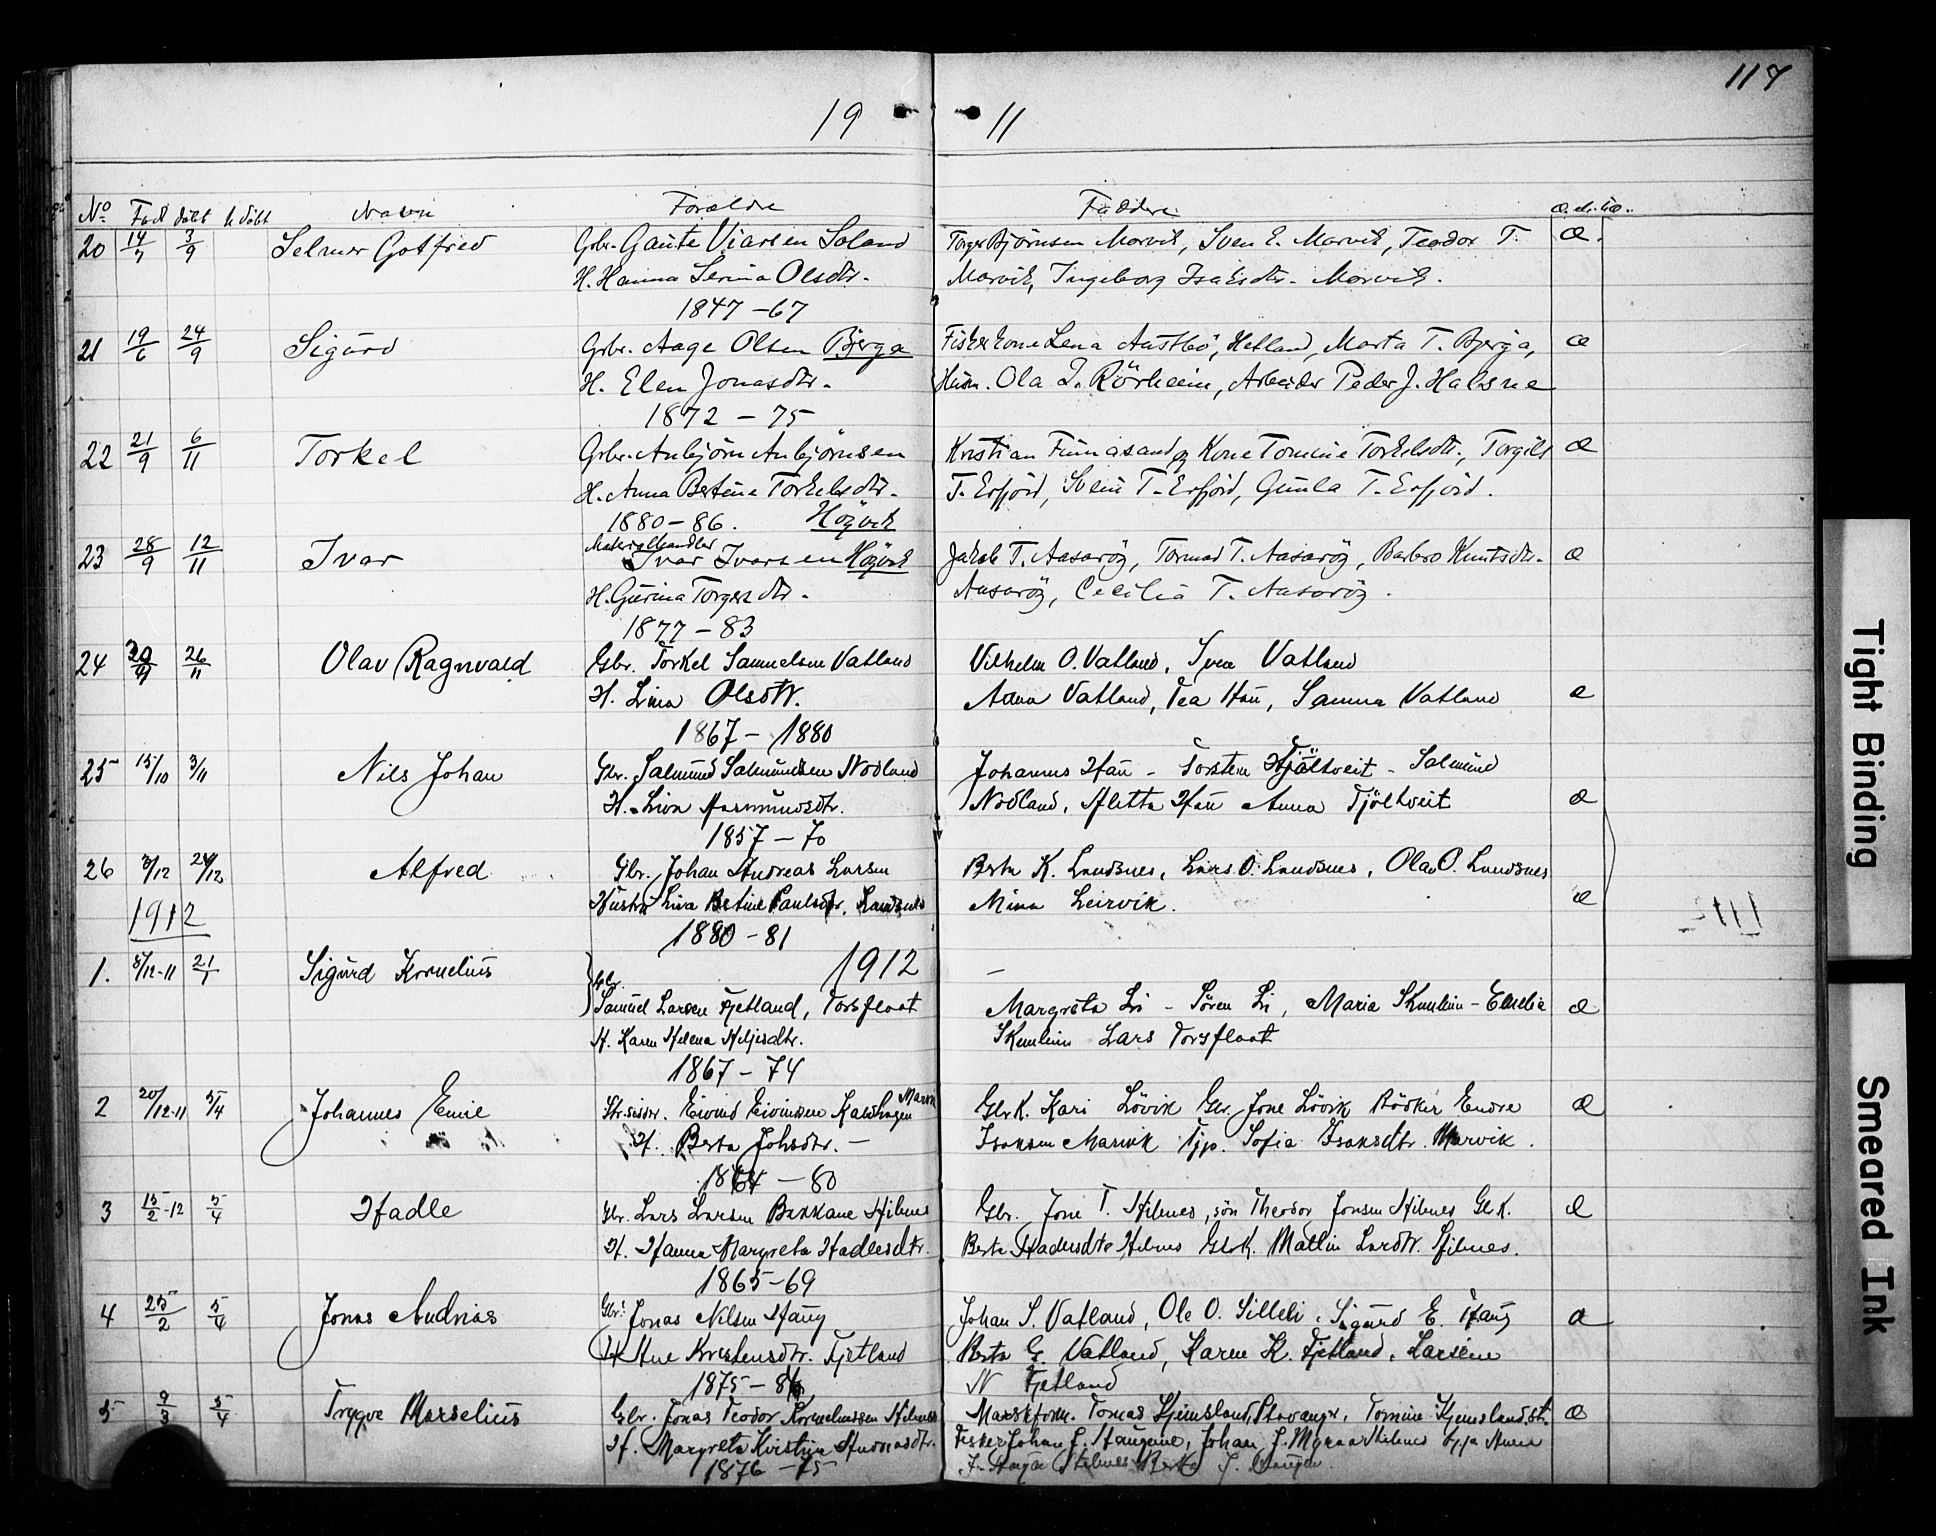 117
19 11
No Født døbt hdøbt Navn Forældre Faddere
20 14/7 3/9 Selmer Gotfred Gbr. Gaute Viarsen Soland Torger Bjørnsen Marvik, Sven E. Marvik, Teodor T. Æ.
H. Hanna Serina Olsdtr. Marvik, Ingeborg Isaksdtr. Marvik.
1847 - 67
21 19/6 24/9 Sigurd Gbr. Aage Olsen Bjerga Fisker Kone Lena Austbø, Hetland, Marta T. Bjerga, Æ
H. Elen Jonasdtr. Husm. Ola L. Rørheim, Arbeider Peder J. Halsne
1872 - 75
22 21/9 6/11 Torkel Gbr. Anbjørn Anbjørnsen Kristian Funnasand og Kone Tomine Torkelsdtr., Torgils Æ
H. Anna Bertine Torkelsdtr. T. Erfjord, Svein T. Erfjord, Gunla T. Erfjord.
1880 - 86. Høgvik
23 28/9 12/11 Ivar Materialhandler Ivar Ivarsen Høgvik Jakob T. Aasarøy, Tormod T. Aasarøy, Barbro Knutsdtr. Æ
H. Gurina Torgersdtr. Aasarøy, Cecilia T. Aasarøy.
1877 - 83
24 26/11 Olav Ragnvald Gbr. Torkel Samuelsen Vatland Vilhelm O. Vatland, Sven Vatland
H. Lina Olsdtr. Anna Vatland, Tea Hau, Samuna Vatland Æ
1867 - 1880
25 15/10 3/11 Nils Johan Gbr. Salmund Salmundsen Nodland Johannes Hau - Torsten Tjöltveit - Salmund
H. Liva Aasmundsdtr. Nodland, Mletta Hau Anna Tjöltveit Æ
1857 - 70
26 3/12 24/12 Alfred Gbr. Johan Andreas Larsen Berta K. Landsnes, Lars O. Landsnes, Olav O. Landsnes
1912 Hustru Lina Betine Paulsdtr. Landsnes Mina Leirvik. Æ
1880 - 81
1. 8/12-11 21/1 Sigurd Kornelius Gbr. 1912 -
Samuel Larsen Fjetland, Torsfloat Margreta Li - Søren Li, Maria Skeulein - Emelie Æ
H. Karen Helena Hiljesdtr. Skeulein Lars Torsfloat
1867 - 74
2 20/12-11 5/4 Johannes Emil Eivind Eivindsen Kalvhagen Marvik GbrK. Kari Løvik Gbr. Jone Løvik Bødker Endre Æ
H. Berta Johsdtr. - Isaksen Marvik Tjp. Sofia Isaksdtr. Marvik.
1864 - 80
3 15/2-12 5/4 Hadle Gbr. Lars Larsen Bakkane Hilnes Gbr. Jone T. Hilnes, søn Theodor Jonsen Hilnes GbK. Æ
H. Hanna Margreta Hadlesdtr. Berta Hadlesdtr Hilnes GbrK. Mallin Larsdtr. Hilnes.
1865-69
4 25/2 5/4 Jonas Andreas Gbr. Jonas Nilsen Haug Johan S. Vatland, Ole O. Silleli, Sigurd E. Haug Æ
H Ane Kristensdtr. Fjetland Berta G. Vatland, Karen K. Fjetland, Larsine
1875 - N Fjetland
5 9/3 5/4 Trygve Marselius Gbr. Jonas Teodor Korneliussen Hilnes Tomas Hjemsland, Stavanger, Tomine Hjemsland. st. Æ
H. Margreta Kristine Andreasdtr. Fisker Johan J. Haugene, Johan J. Myraa Hilnes
1876 - 75 Hilnes Berta J. Haugen